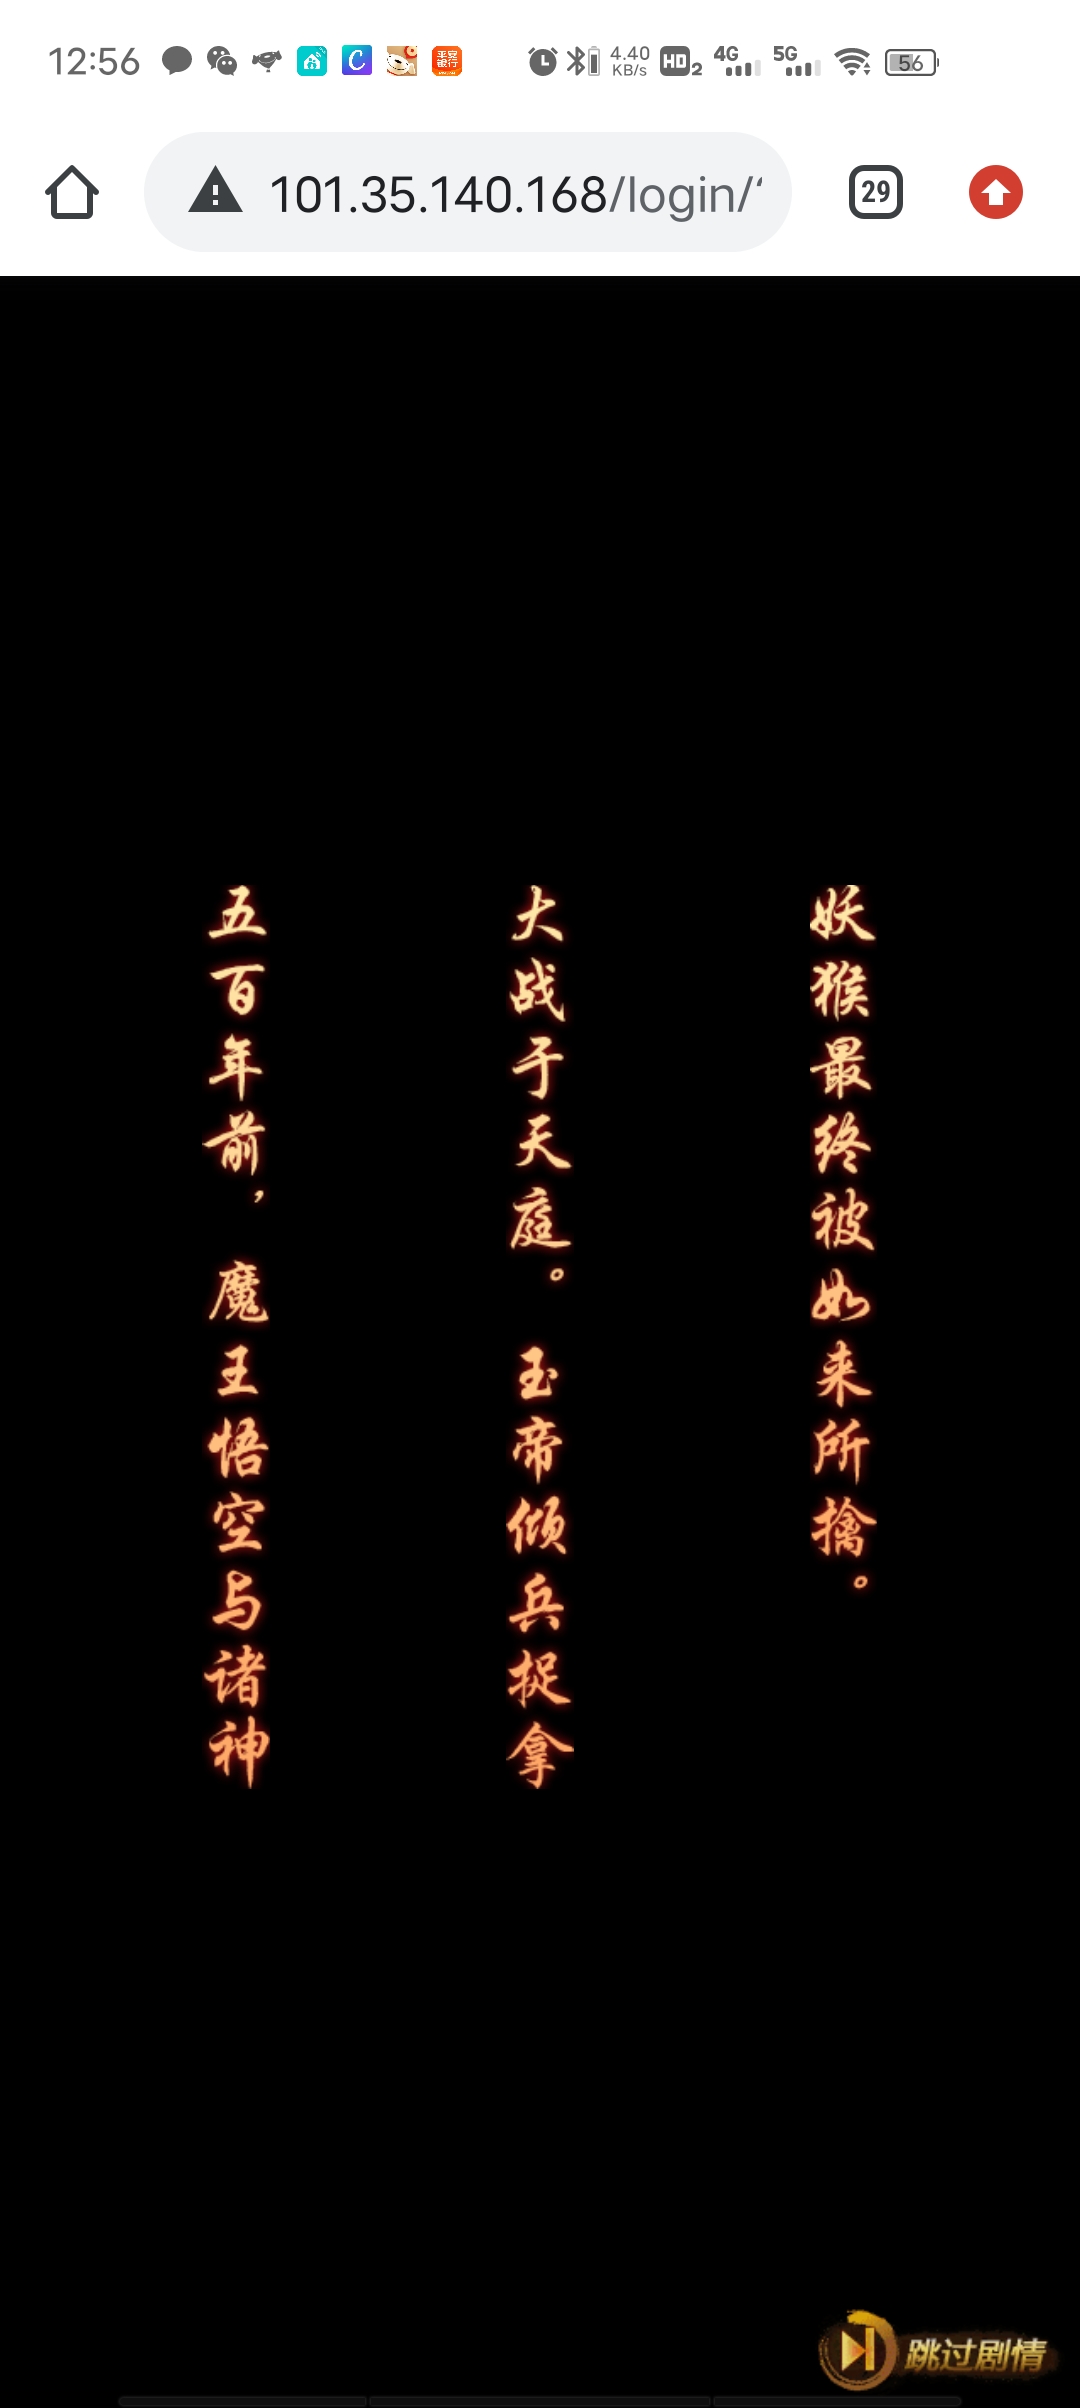 12:56
4.40
KB/s
HD2
4G
5G
56
平安
银行
101.35.140.168/login/
29
五百年前，魔王悟空与诸神
大战于天庭。玉帝倾兵捉拿
妖猴最终被如来所擒。
跳过剧情